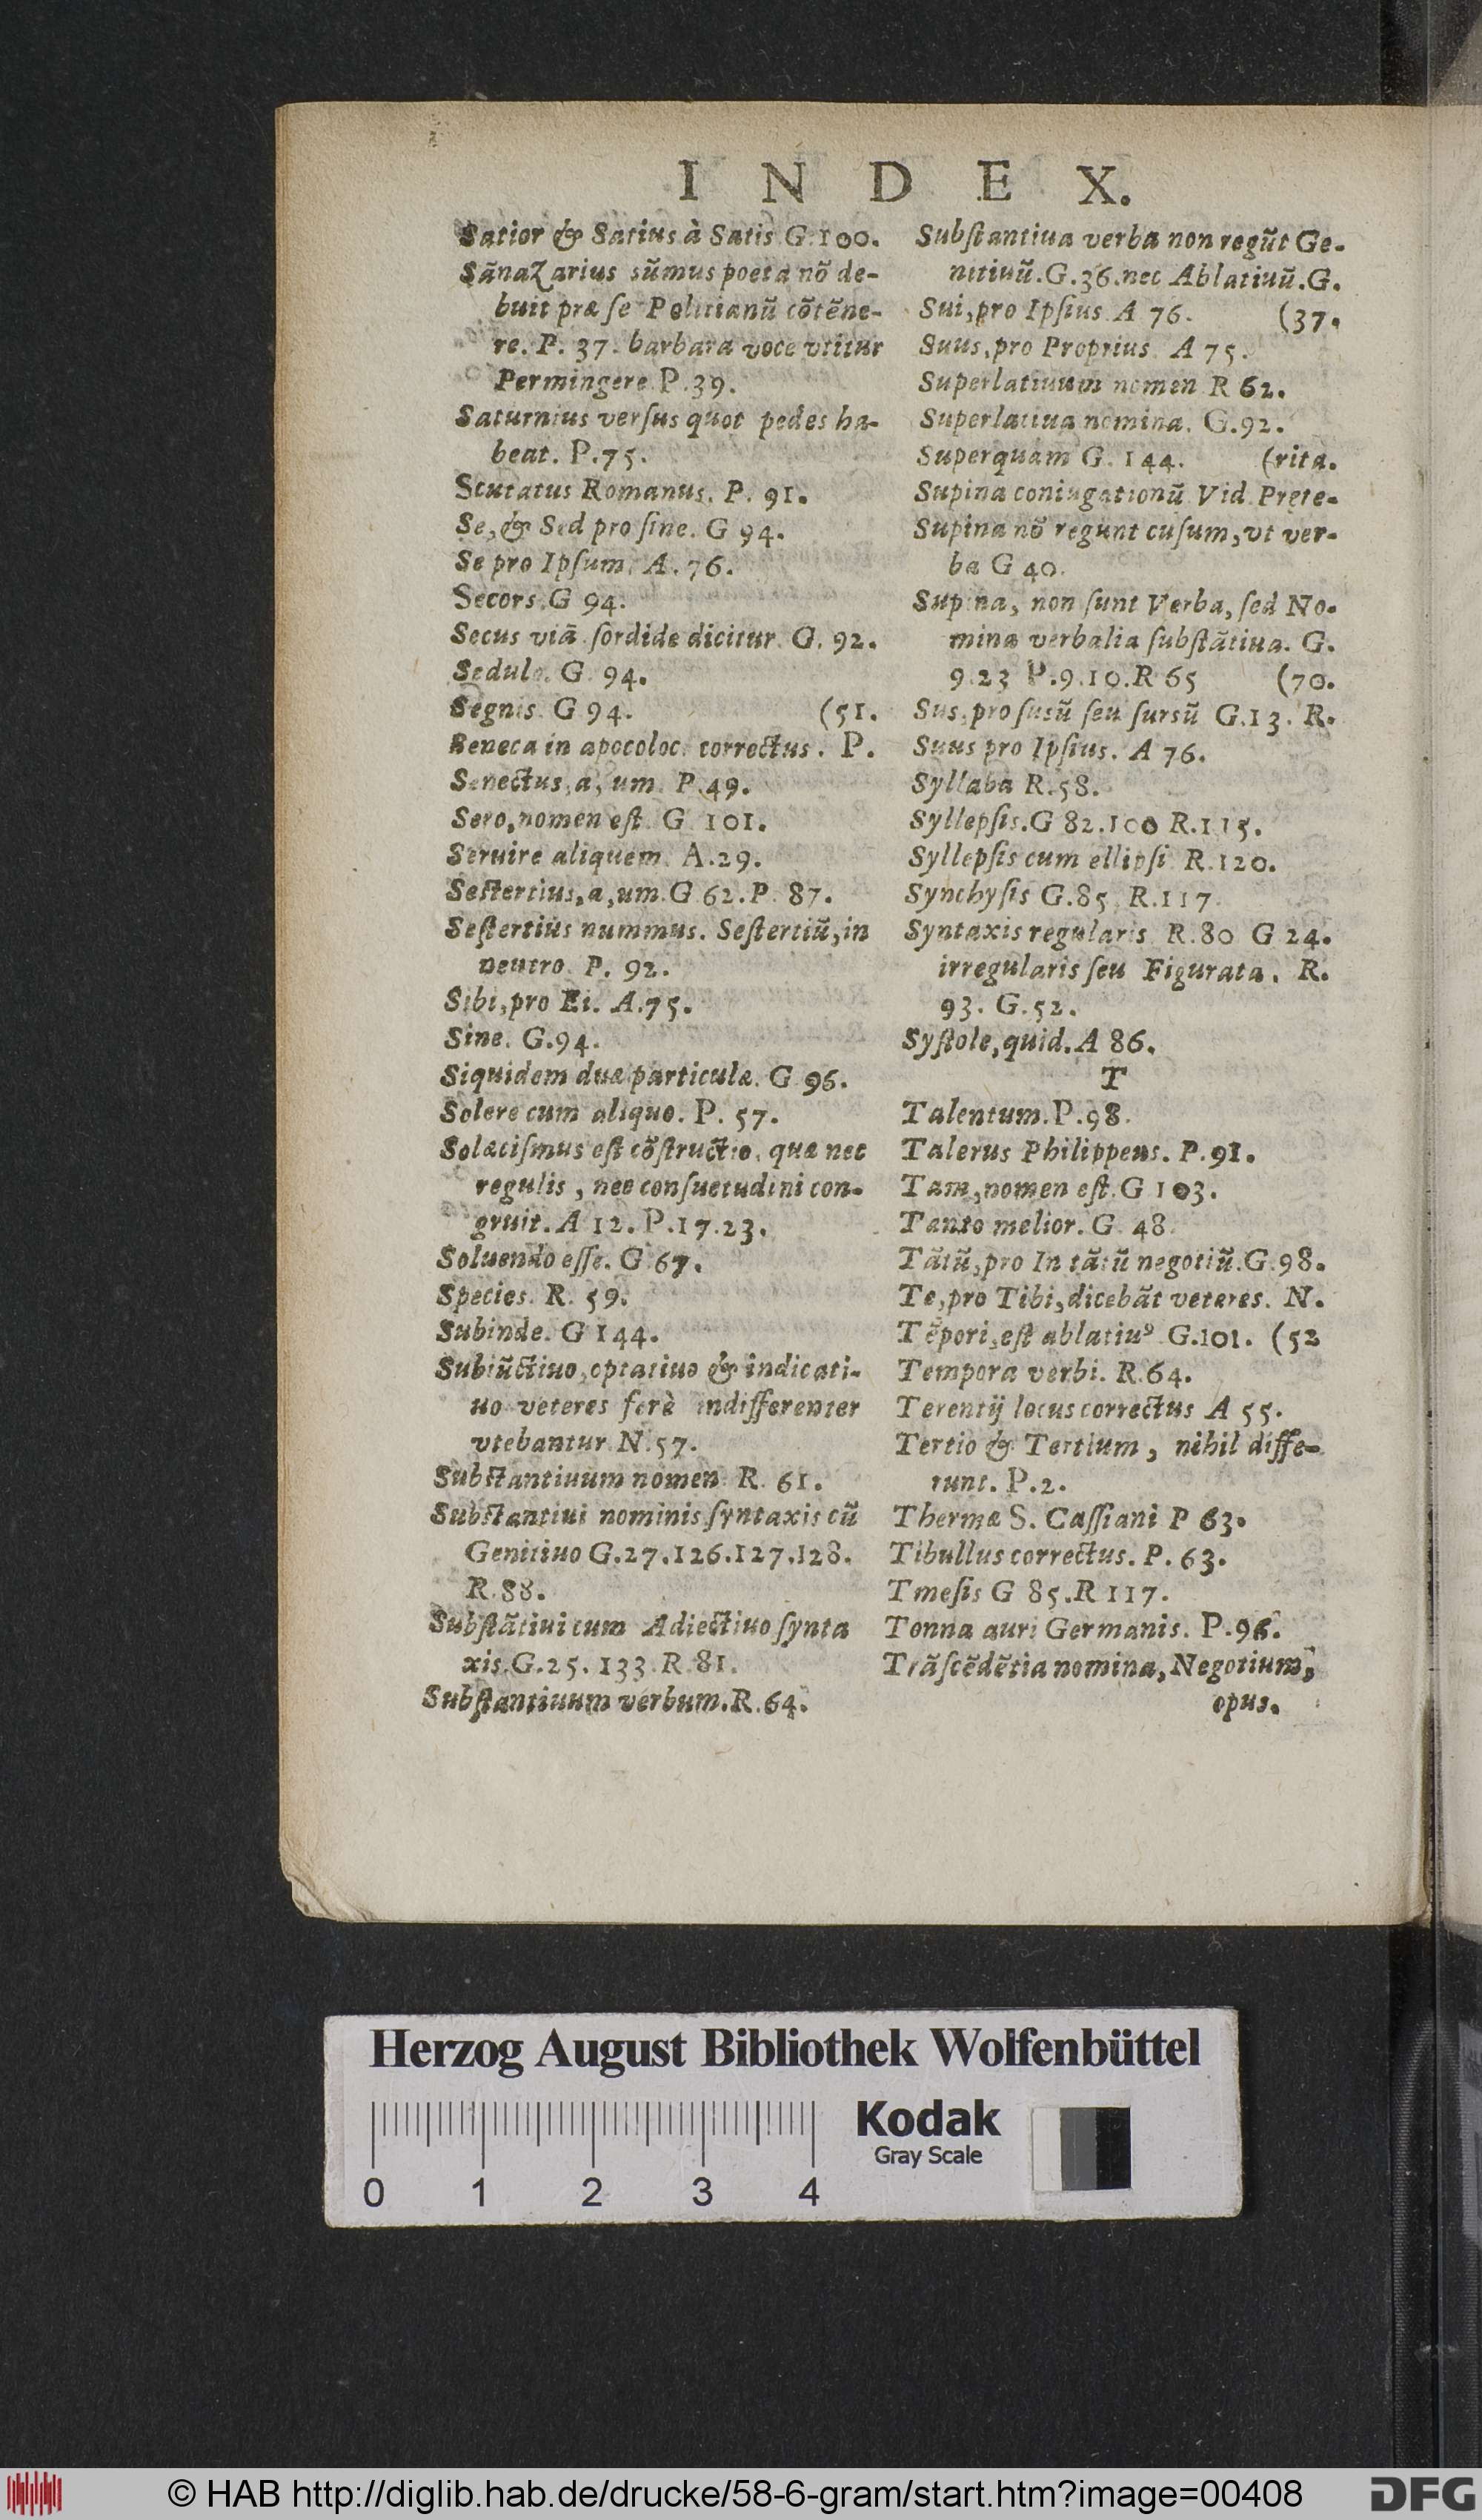 INDEX.
Satior & Satius à Satis G. 100.
SãnaZarius sũmus poeta nõ de-
buit præ se Politianũ cõtẽne-
re. P. 37. barbara voce vtitur
Permingere P. 39.
Saturnius versus quot pedes ha-
beat. P. 75.
Scutatus Romanus. P. 91.
Se, & Sed pro sine. G 94.
Se pro Ipsum. A. 76.
Secors. G 94.
Secus viã sordide dicitur. G. 92.
Sedulo. G. 94.
Segnis. G 94. (51.
Seneca in apocoloc. correctus. P.
Senectus, a, um. P. 49.
Sero, nomen est. G. 101.
Seruire aliquem. A. 29.
Sestertius, a, um. G 62. P. 87.
Sestertius nummus. Sestertiũ, in
neutro. P. 92.
Sibi, pro Ei. A. 75.
Sine. G. 94.
Siquidem duæ particulæ. G 96.
Solere cum aliquo. P. 57.
Solæcismus est cõstructio, quæ nec
regulis, nec consuetudini con-
gruit. A 12. P. 17. 23.
Soluendo esse. G 67.
Species. R. 59.
Subinde. G 144.
Subiũctiuo, optatiuo & indicati-
uo veteres ferè indifferenter
vtebantur. N. 57.
Substantiuum nomen R. 61.
Substantiui nominis syntaxis cũ
Genitiuo G. 27. 126. 127. 128.
R. 88.
Substãtiui cum Adiectiuo synta
xis. G. 25. 133. R. 81.
Substantiuum verbum. R. 64.
Substantiua verba non regũt Ge-
nitiuũ. G. 36. nec Ablatiuũ. G.
Sui, pro Ipsius. A 76. (37.
Suus, pro Proprius. A 75.
Superlatiuum nomen R 62.
Superlatiua nomina. G. 92.
Superquam G. 144. (rita.
Supina coniugationũ. Vid. Pręte-
Supina nõ regunt cusum, vt ver-
ba G 40.
Supina, non sunt Verba, sed No-
mina verbalia substãtiua. G.
9. 23 P. 9. 10. R 65 (70.
Sus, pro susũ seu sursũ G. 13. R.
Suus pro Ipsius. A 76.
Syllaba R. 58.
Syllepsis. G 82. 100 R. 115.
Syllepsis cum ellipsi R. 120.
Synchysis G. 85. R. 117.
Syntaxis regularis R. 80 G 24.
irregularis seu Figurata. R.
93. G. 52.
Systole, quid. A 86.
T
Talentum. P. 98.
Talerus Philippeus. P. 91.
Tam, nomen est. G 103.
Tanto melior. G. 48.
Tãtũ, pro In tãtũ negotiũ. G. 98.
Te, pro Tibi, dicebãt veteres. N.
Tẽpori, est ablatiuꝰ G. 101. (52
Tempora verbi. R. 64.
Terentij locus correctus A 55.
Tertio & Tertium, nihil diffe-
runt. P. 2.
Thermæ S. Cassiani P 63.
Tibullus correctus. P. 63.
Tmesis G 85. R 117.
Tonna auri Germanis. P. 96.
Trãscẽdẽtia nomina, Negotium,
opus.
Herzog August Bibliothek Wolfenbüttel
Kodak
Gray Scale
0 1 2 3 4
© HAB http://diglib.hab.de/drucke/58-6-gram/start.htm?image=00408
DFG